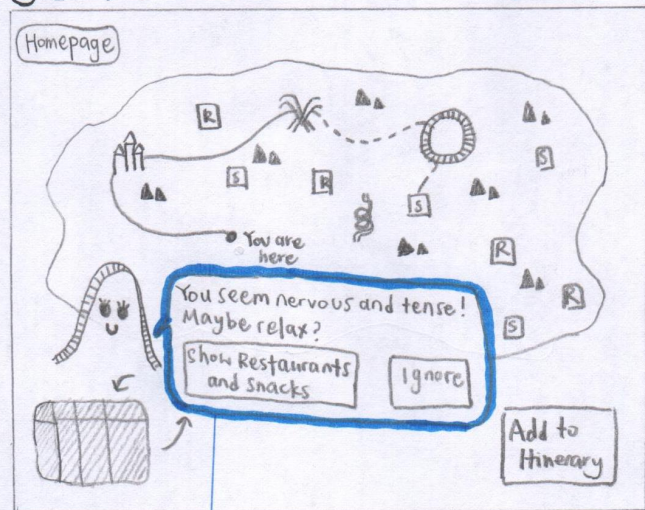 Homepage
R
S
R
S
S
R
R
S
You are
here
You seem nervous and tense!
Maybe relax?
Show Restaurants
and snacks
Ignore
Add to
Itinerary